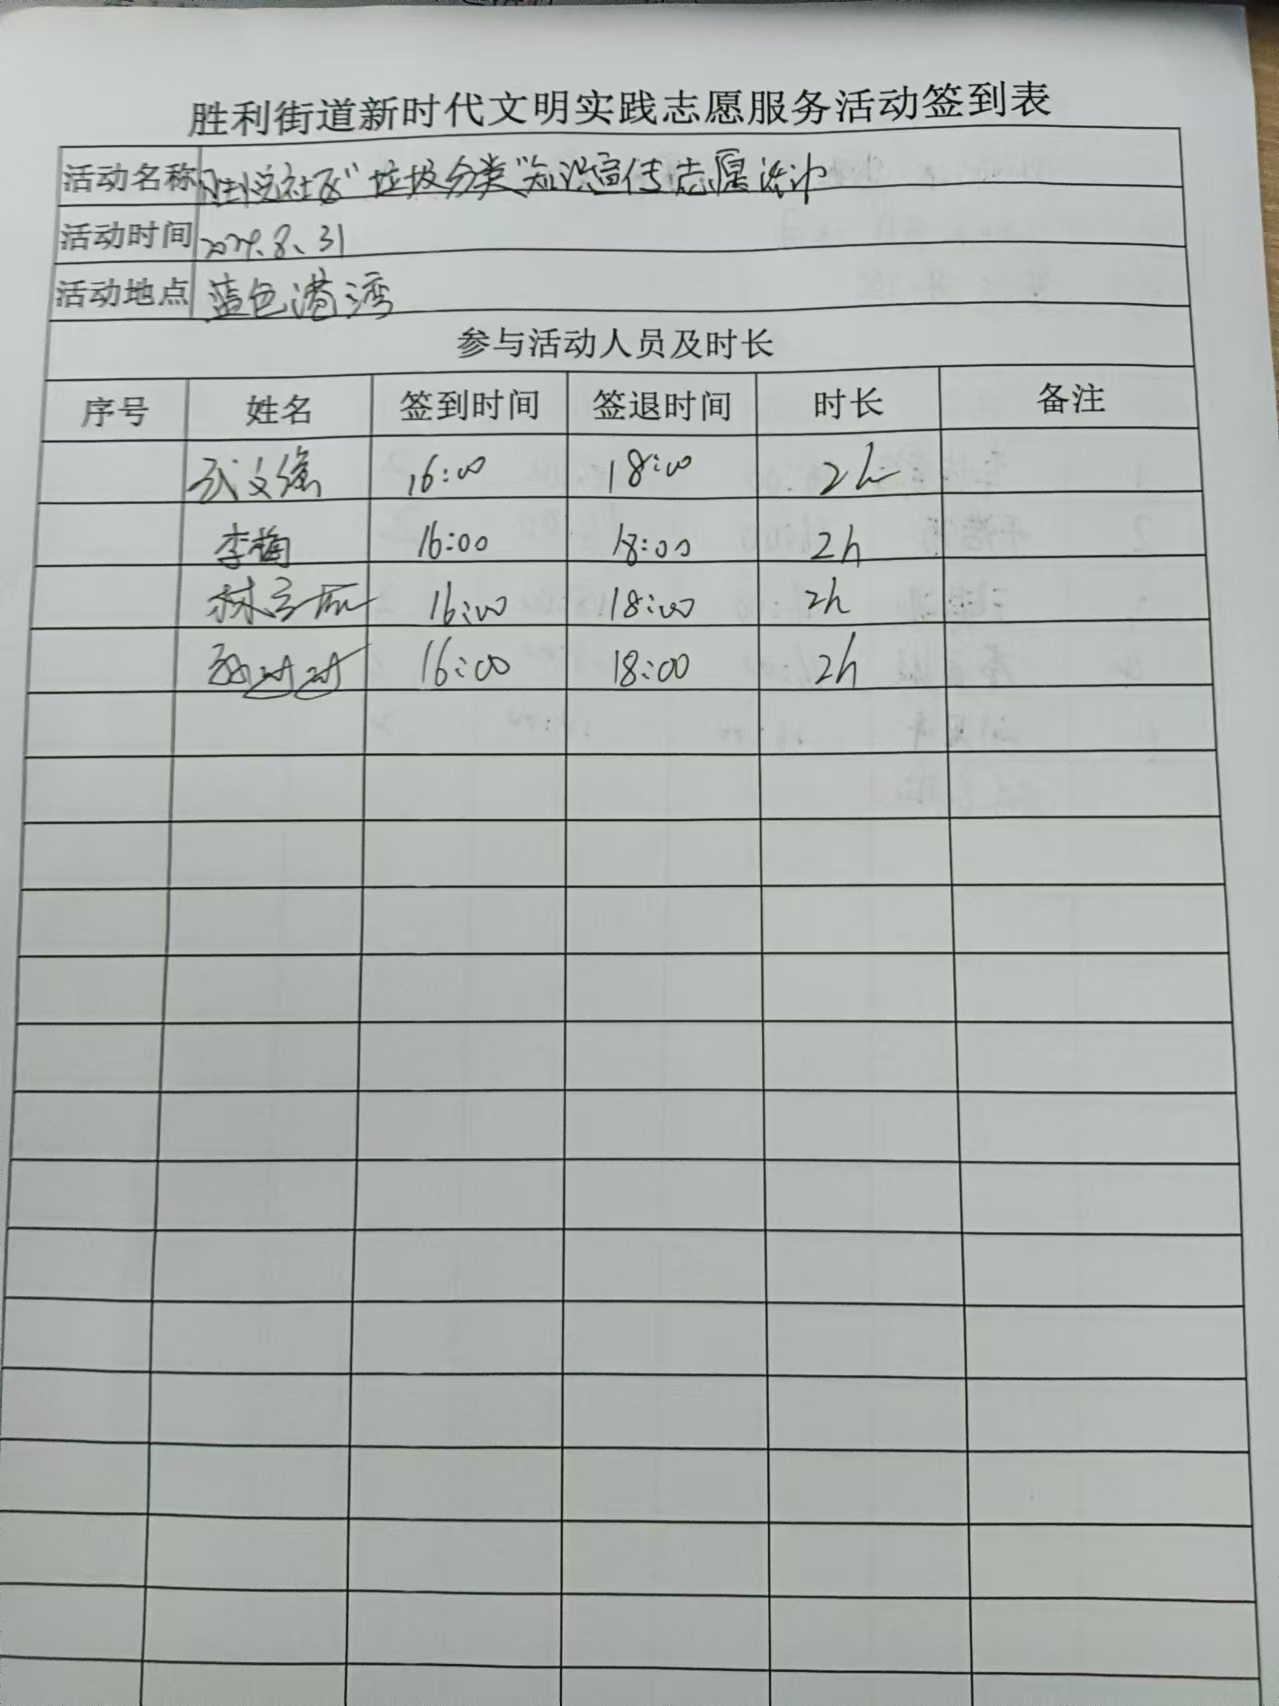 胜利街道新时代文明实践志愿服务活动签到表
活动名称 胜悦社区"垃圾分类"知识宣传志愿活动
活动时间 2024.8.31
活动地点 蓝色港湾
参与活动人员及时长
序号 姓名 签到时间 签退时间 时长 备注
16:00 18:00 2h
李梅 16:00 18:00 2h
16:00 18:00 2h
16:00 18:00 2h